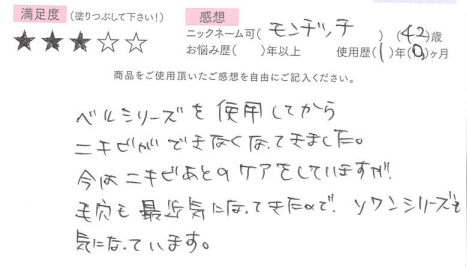 満足度 (塗りつぶして下さい!) 感想
★★★☆☆ ニックネーム可( モンチッチ ) (42)歳
お悩み歴( )年以上 使用歴(1)年(0)ヶ月
商品をご使用頂いたご感想を自由にご記入ください。
ベルシリーズを使用してから
ニキビができなくなってきました。
今はニキビあとのケアをしていますが、
毛穴も最近気になってきたので、ソワンシリーズも
気になっています。